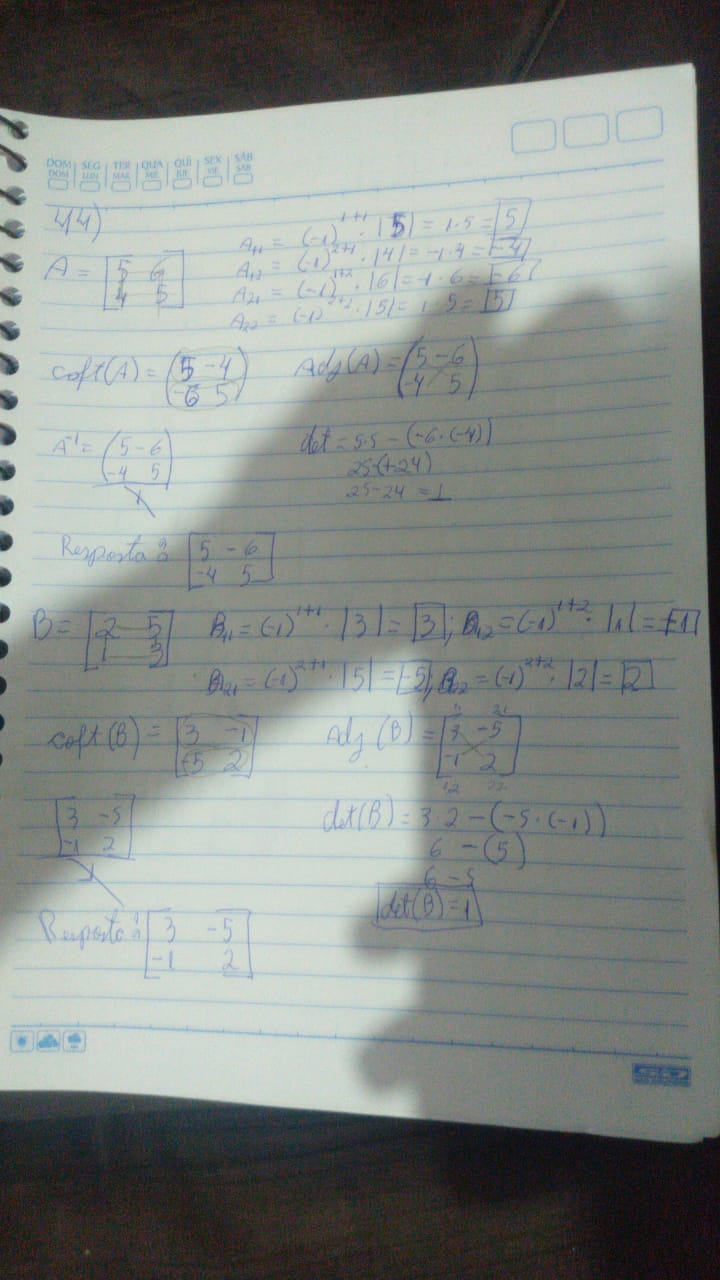 DOM SEG TER QUA QUI SEX SÁB
DOM LUN MAR MIÉ JUE VIE SAB
44)
A = [5 6
4 5]
A₁₁ = (-1)¹⁺¹ · |5| = 1·5 = 5
A₁₂ = (-1)²⁺¹ · |4| = -1·4 = -4
A₂₁ = (-1)¹⁺² · |6| = -1·6 = -6
A₂₂ = (-1)²⁺² · |5| = 1·5 = 5
coft(A) = (5 -4
-6 5)
Adj(A) = (5 -6
-4 5)
A⁻¹ = (5 -6
-4 5)
1
det = 5·5 - (-6·(-4))
25-(+24)
25-24 = 1
Resposta: [5 -6
-4 5]
B = [2 5
1 3]
B₁₁ = (-1)¹⁺¹ · |3| = 3; B₁₂ = (-1)¹⁺² · |1| = -1
B₂₁ = (-1)²⁺¹ · |5| = -5; B₂₂ = (-1)²⁺² · |2| = 2
coft(B) = [3 -1
-5 2]
Adj(B) = [3 -5
-1 2]
11 21
12 22
[3 -5
-1 2]
1
det(B) = 3·2 - (-5·(-1))
6 - (5)
6 - 5
det(B) = 1
Resposta: [3 -5
-1 2]